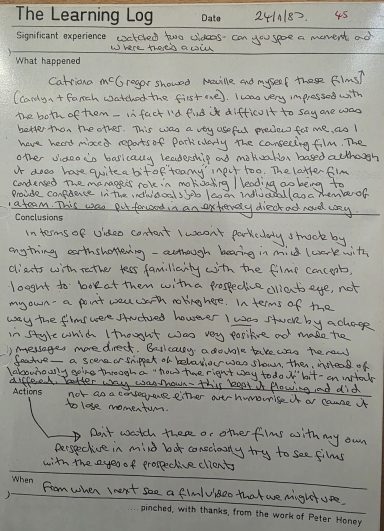 The Learning Log Date 24/11/87. 45
Significant experience watched two videos - can you spare a moment and
where there's a will
What happened
Catriona McGregor showed Neville and myself these films
(Carolyn + Farrah watched the first one). I was very impressed with
the both of them - in fact I'd find it difficult to say one was
better than the other. This was a very useful preview for me, as I
have heard mixed reports of particularly the counselling film. The
other video is basically leadership and motivation based although
it does have quite a bit of 'teamy' input too. The latter film
condensed the manager's role in motivating / leading as being to
provide confidence in the individual's job (as an individual) as a member of
a team. This was put forward in an extremely direct and novel way
Conclusions
In terms of video content I wasn't particularly struck by
anything earthshattering - although bearing in mind I work with
clients with rather less familiarity with the films concepts,
I ought to look at them with a prospective clients eye, not
my own - a point well worth noting here. In terms of the
way the films were structured however I was struck by a change
in style which I thought was very positive and made the
messages more direct. Basically a double take was the new
feature - a scene or snippet of behaviour was shown then, instead of
laboriously going through a "now the right way to do it" bit - an instant
different, better way was shown - this kept it flowing and did
not as a consequence either over-humourise it or cause it
to lose momentum.
Actions
Don't watch these or other films with my own
perspective in mind but consciously try to see films
with the eyes of prospective clients
When From when I next see a film/video that we might use.
.... pinched, with thanks, from the work of Peter Honey